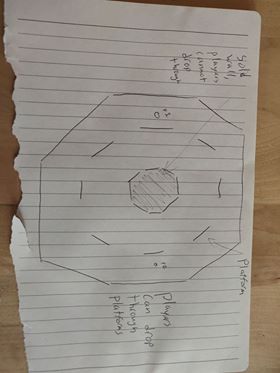 Solid
wall,
players
cannot
drop
through
Platform
Players
can drop
through
platforms